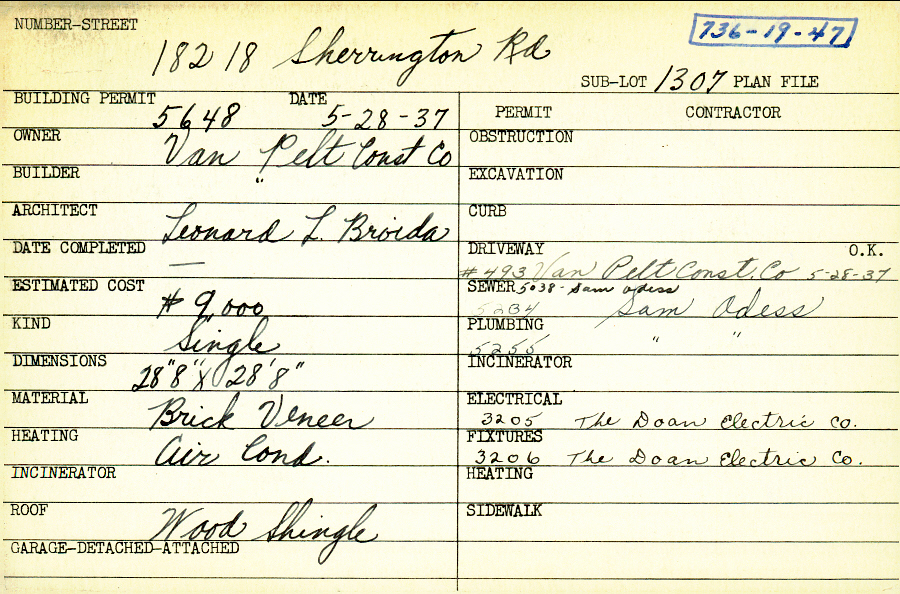 NUMBER-STREET
736-19-47
18218 Sherrington Rd
SUB-LOT 1307 PLAN FILE
BUILDING PERMIT 5648 DATE 5-28-37
OWNER Van Pelt Const Co
BUILDER "
ARCHITECT Leonard L. Broida
DATE COMPLETED —
ESTIMATED COST $9,000
KIND Single
DIMENSIONS 28"8" X 28'8"
MATERIAL Brick Veneer
HEATING Air Cond.
INCINERATOR
ROOF Wood Shingle
GARAGE-DETACHED-ATTACHED
PERMIT CONTRACTOR
OBSTRUCTION
EXCAVATION
CURB
DRIVEWAY O.K.
#493 Van Pelt Const. Co 5-28-37
SEWER 5038 - Sam Odess
5234 Sam Odess
PLUMBING
5255 " "
INCINERATOR
ELECTRICAL
3205 The Doan Electric Co.
FIXTURES
3206 The Doan Electric Co.
HEATING
SIDEWALK